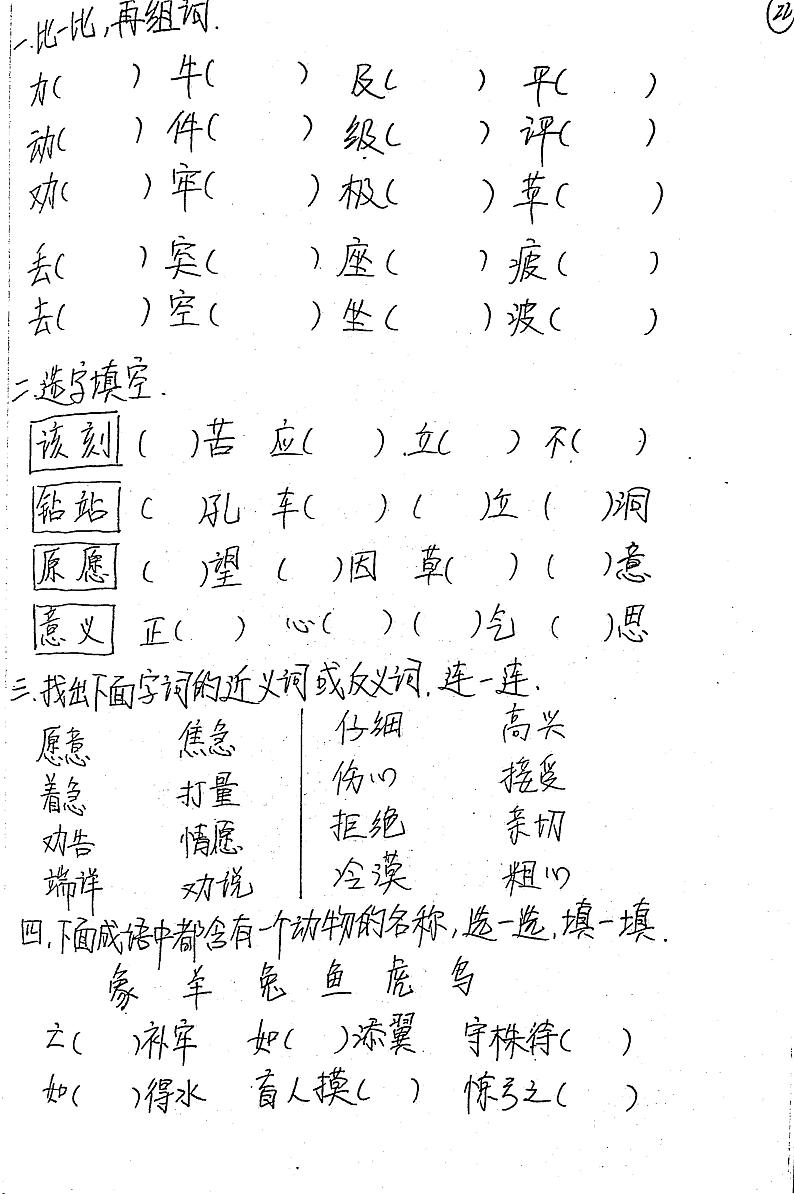 22
一.比一比,再组词.
力( ) 牛( ) 及( ) 平( )
动( ) 件( ) 级( ) 评( )
劝( ) 牢( ) 极( ) 草( )
丢( ) 窦( ) 座( ) 疲( )
去( ) 空( ) 坐( ) 波( )
二.选字填空.
该 刻 ( )苦 应( ) 立( ) 不( )
钻 站 ( )孔 车( ) ( )立 ( )洞
原 愿 ( )望 ( )因 草( ) ( )意
意 义 正( ) 心( ) ( )气 ( )思
三.找出下面字词的近义词或反义词.连一连.
愿意 焦急 仔细 高兴
着急 打量 伤心 接受
劝告 情愿 拒绝 亲切
端详 劝说 冷漠 粗心
四.下面成语中都含有一个动物的名称,选一选,填一填.
象 羊 兔 鱼 虎 鸟
亡( )补牢 如( )添翼 守株待( )
如( )得水 盲人摸( ) 惊弓之( )